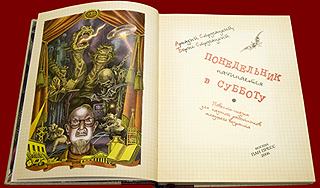 Аркадий Стругацкий,
Борис Стругацкий
ПОНЕДЕЛЬНИК
начинается
в СУББОТУ
Повесть-сказка
для научных работников
младшего возраста
МОСКВА
ПАН ПРЕСС
2006